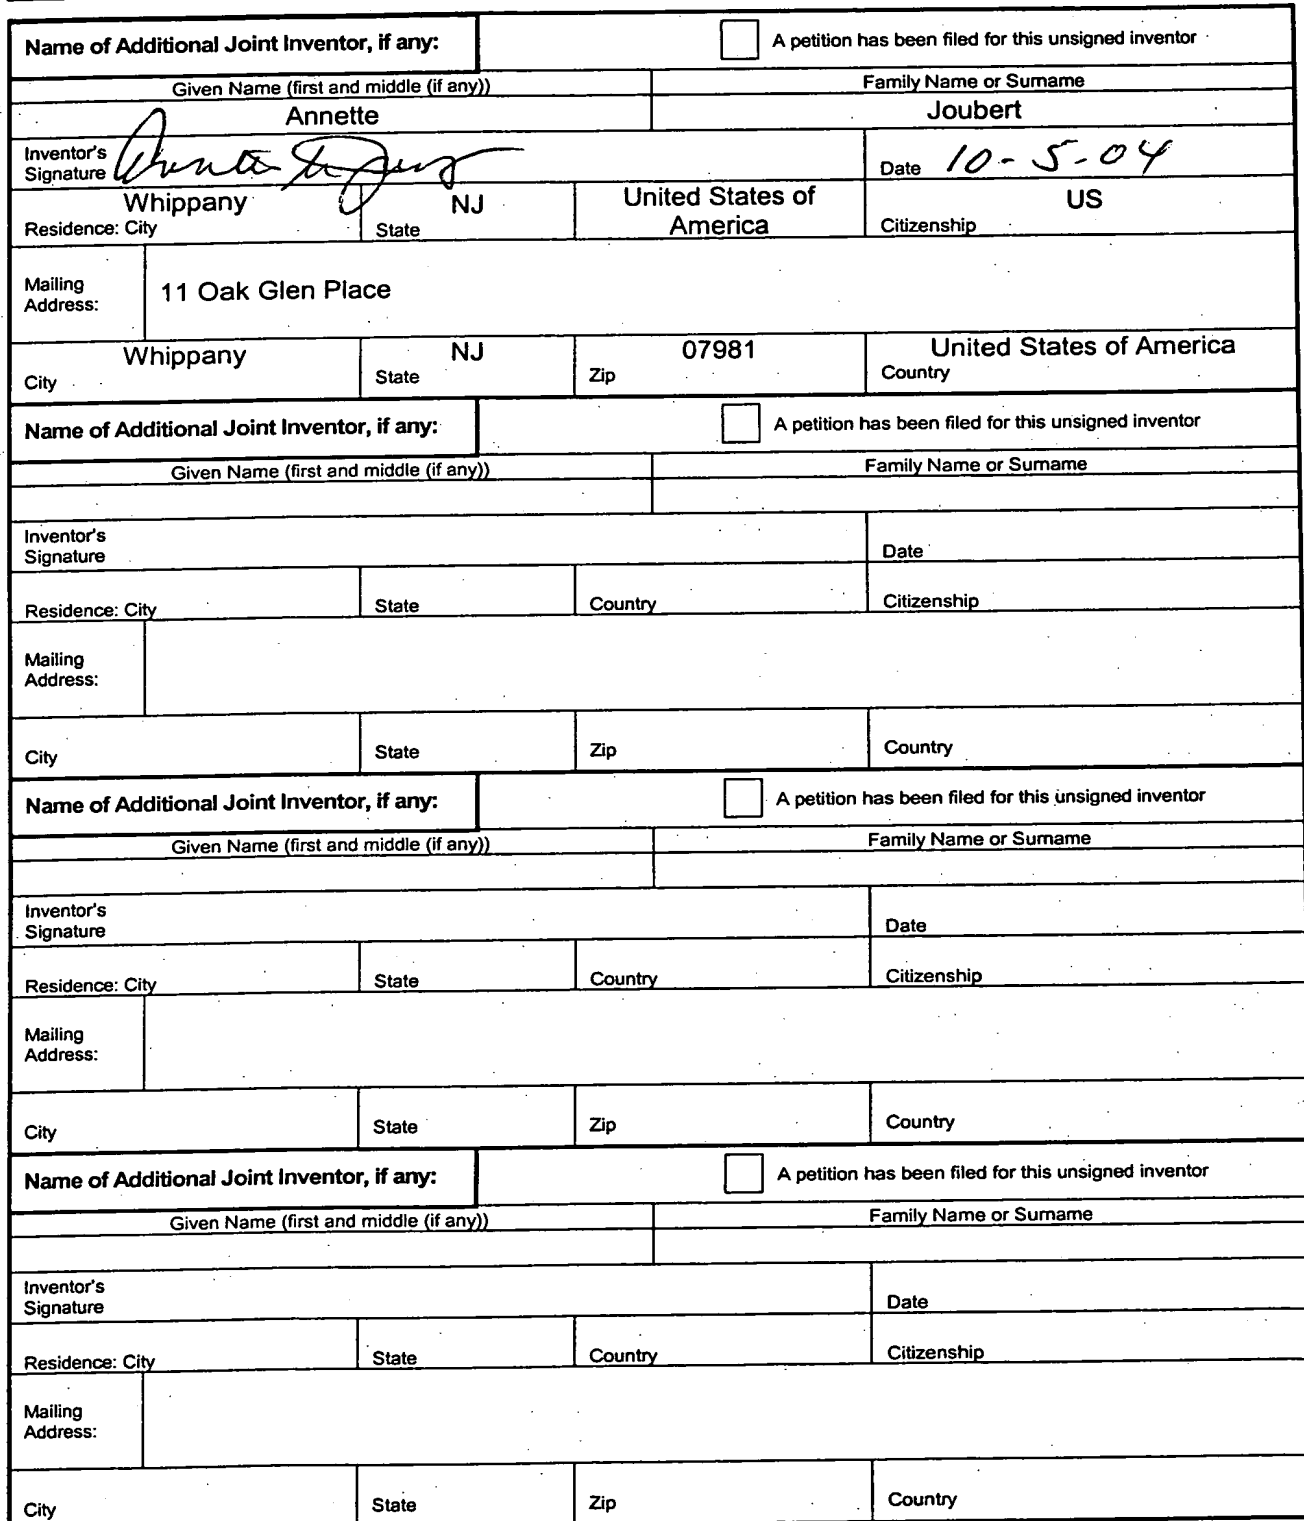 Name of Additional Joint Inventor, if any: A petition has been filed for this unsigned inventor
Given Name (first and middle (if any)) Family Name or Surname
Annette Joubert
Inventor's
Signature Date 10-5-04
Whippany NJ United States of
America US
Residence: City State Citizenship
Mailing
Address: 11 Oak Glen Place
Whippany NJ 07981 United States of America
City State Zip Country
Name of Additional Joint Inventor, if any: A petition has been filed for this unsigned inventor
Given Name (first and middle (if any)) Family Name or Surname
Inventor's
Signature Date
Residence: City State Country Citizenship
Mailing
Address:
City State Zip Country
Name of Additional Joint Inventor, if any: A petition has been filed for this unsigned inventor
Given Name (first and middle (if any)) Family Name or Surname
Inventor's
Signature Date
Residence: City State Country Citizenship
Mailing
Address:
City State Zip Country
Name of Additional Joint Inventor, if any: A petition has been filed for this unsigned inventor
Given Name (first and middle (if any)) Family Name or Surname
Inventor's
Signature Date
Residence: City State Country Citizenship
Mailing
Address:
City State Zip Country